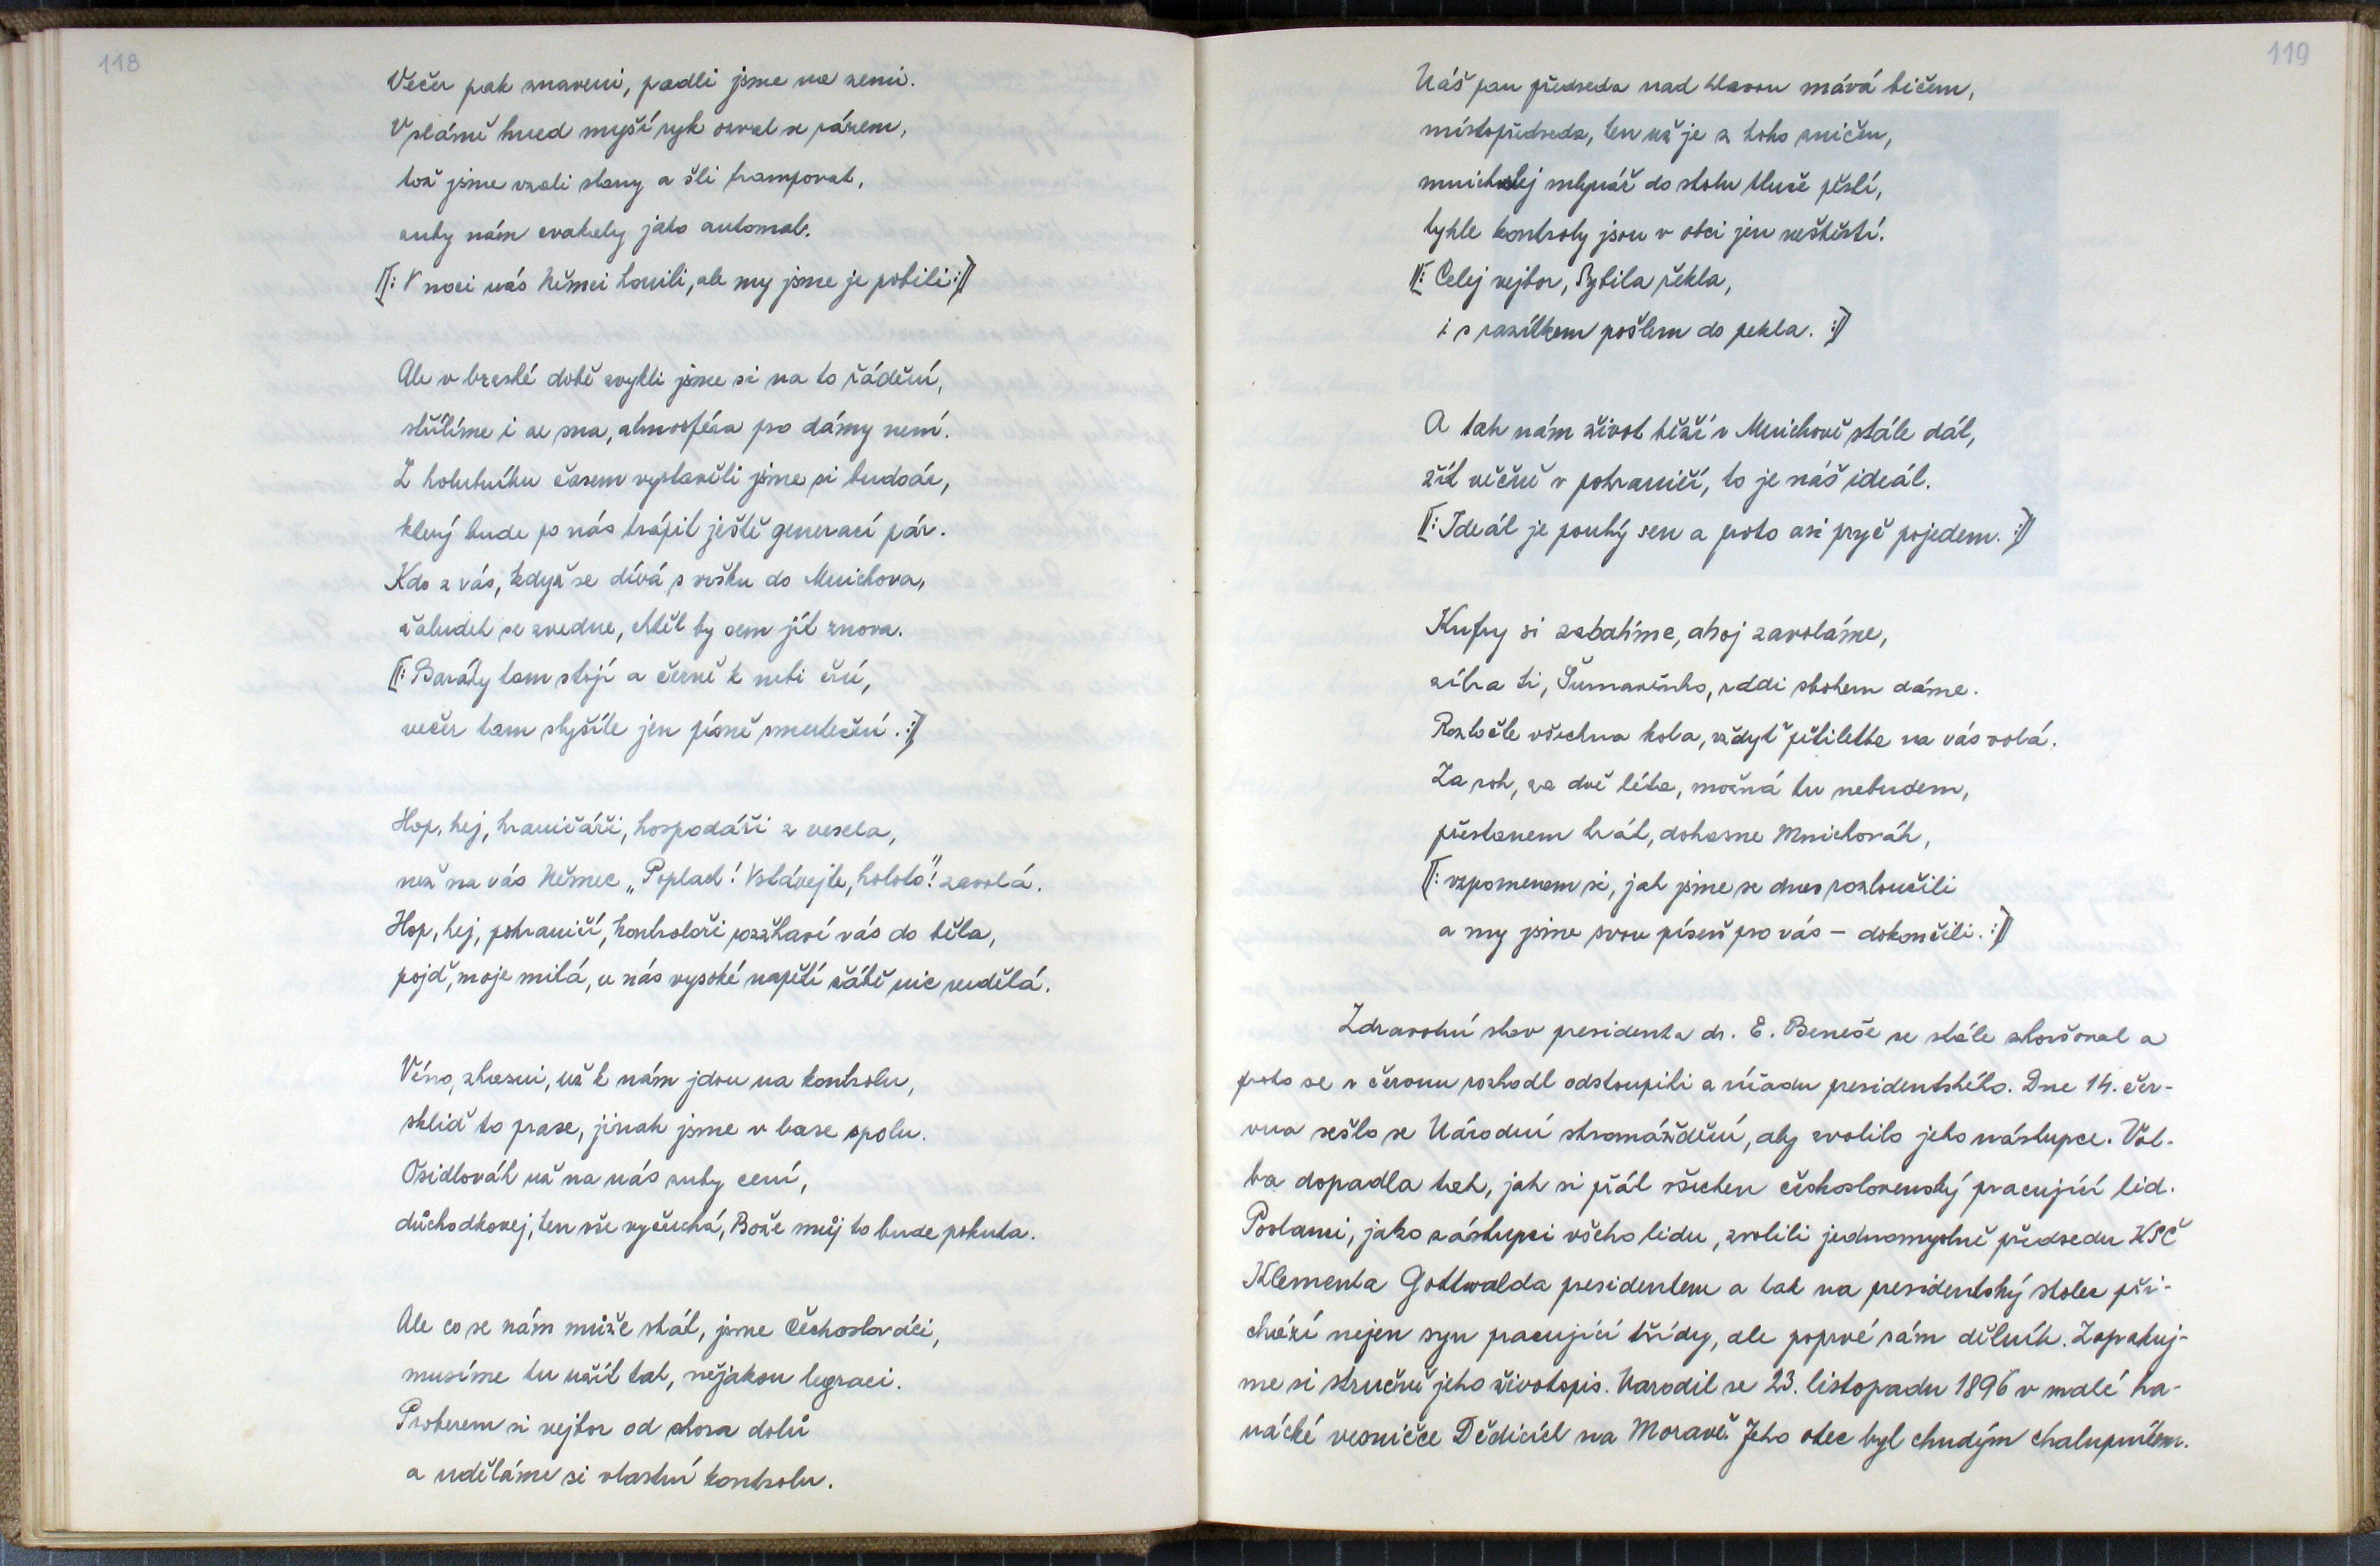 118
Večer pak znaveni, padli jsme na zemi.
V slámě hned myší ryk ozval se rázem,
tož jsme vzali stany a šli trampovat,
zuby nám cvakaly jako automat.
[: V noci nás Němci honili, ale my jsme je pobili :]
Ale v brzské době zvykli jsme si na to řádění,
střílíme i ze sna, atmosféra pro dámy není.
Z holubníku časem vystavěli jsme si budoár,
který bude po nás trápit ještě generací pár.
Kdo z vás, když se dívá s vršku do Mnichova,
žaludek se zvedne, chtěl by sem jít znova.
[: Baráky tam stojí a černě k nebi ční,
večer tam slyšíte jen písně smuteční. :]
Hop, hej, hraničáři, hospodáři z vesela,
než na vás Němec „Poplach! Vstávejte, holoto"! zavolá.
Hop, hej, pohraničí, kontroloři rozžhaví vás do běla,
pojď, moje milá, u nás vysoké napětí žábě nic neudělá.
Víno, zhasni, už k nám jdou na kontrolu,
skliď to prase, jinak jsme v base spolu.
Osidlovák už na nás zuby cení,
důchodkovej, ten vše vyčuchá, Bože můj to bude pokuta.
Ale co se nám může stát, jsme Čechoslováci,
musíme tu užít tak, nějakou legraci.
Proberem si vejbor od shora dolů
a uděláme si vlastní kontrolu.
119
Náš pan předseda nad hlavou mává bičem,
místopředseda, ten už je z toho zničen,
mnichovej mlynář do stolu tluče pěstí,
tyhle kontroly jsou v obci jen neštěstí.
[: Celej vejbor, Sybila řekla,
i s razítkem pošlem do pekla. :]
A tak nám život běží v Mnichově stále dál,
žít věčně v pohraničí, to je náš ideál.
[: Ideál je pouhý sen a proto asi pryč pojedem. :]
Kufry si zabalíme, ahoj zavoláme,
zíbra ti, Šumavěnko, rádi sbohem dáme.
Roztočte všechna kola, vždyť pětiletka na vás volá.
Za rok, za dvě léta, možná tu nebudem,
přestanem hrát, dohasne Mnichovák,
[: vzpomenem si, jak jsme se dnes rozloučili
a my jsme svou píseň pro vás – dokončili. :]
Zdravotní stav presidenta dr. E. Beneše se stále zhoršoval a
proto se v červnu rozhodl odstoupiti z úřadu presidentského. Dne 14. čer-
vna sešlo se Národní shromáždění, aby zvolilo jeho nástupce. Vol-
ba dopadla tak, jak si přál všechen československý pracující lid.
Poslanci, jako zástupci všeho lidu, zvolili jednomyslně předsedu KSČ
Klementa Gottwalda presidentem a tak na presidentský stolec při-
chází nejen syn pracující třídy, ale poprvé sám dělník. Zopakuj-
me si stručně jeho životopis. Narodil se 23. listopadu 1896 v malé ha-
nácké vesničce Dědicích na Moravě. Jeho otec byl chudým chalupníkem.